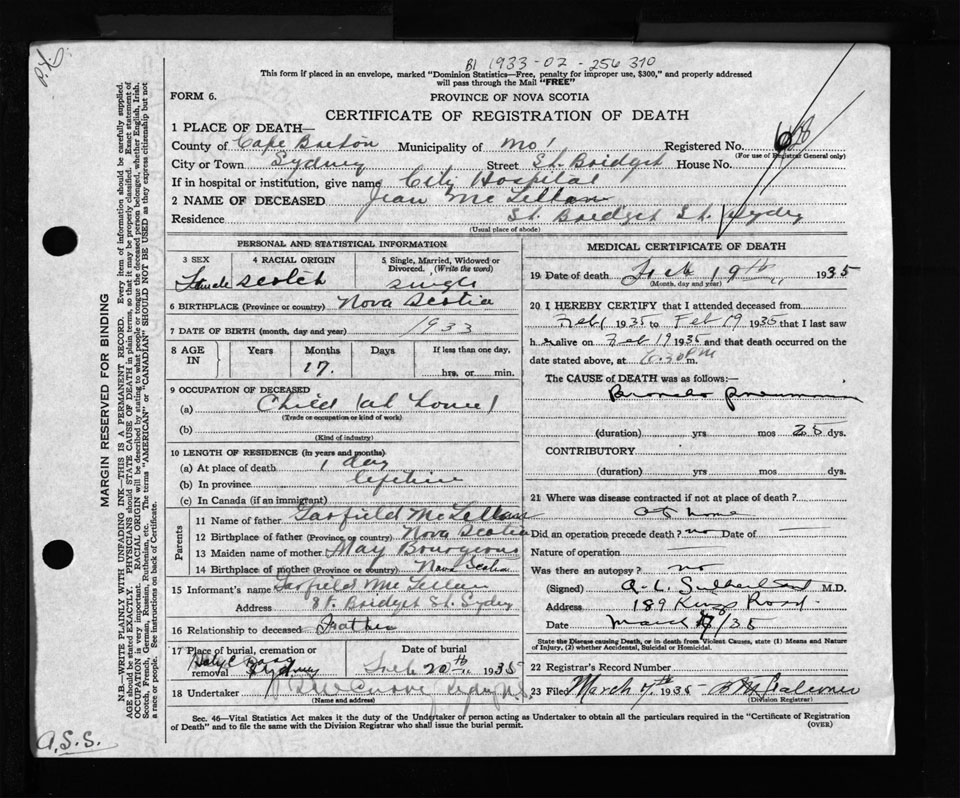 P.X.
B1 1933-02-256310
This form if placed in an envelope, marked "Dominion Statistics—Free, penalty for improper use, $300," and properly addressed
will pass through the Mail "FREE"
FORM 6.
PROVINCE OF NOVA SCOTIA
CERTIFICATE OF REGISTRATION OF DEATH
1 PLACE OF DEATH—
County of Cape Breton Municipality of Registered No. 68
(For use of Registrar General only)
City or Town Sydney Street St. Bridget House No.
If in hospital or institution, give name City Hospital
2 NAME OF DECEASED Jean McLellan
Residence St. Bridget St. Sydney
(Usual place of abode)
PERSONAL AND STATISTICAL INFORMATION
3 SEX Female
4 RACIAL ORIGIN Scotch
5 Single, Married, Widowed or Divorced. (Write the word) Single
6 BIRTHPLACE (Province or country) Nova Scotia
7 DATE OF BIRTH (month, day and year) 1933
8 AGE IN Years Months Days If less than one day,
17. hrs. or min.
9 OCCUPATION OF DECEASED
(a) Child (at home)
(Trade or occupation or kind of work)
(b)
(Kind of industry)
10 LENGTH OF RESIDENCE (In years and months)
(a) At place of death 1 day
(b) In province lifetime
(c) In Canada (if an immigrant)
Parents
11 Name of father Garfield McLellan
12 Birthplace of father (Province or country) Nova Scotia
13 Maiden name of mother May Bourgeous
14 Birthplace of mother (Province or country) Nova Scotia
15 Informant's name Garfield McLellan
Address St. Bridget St. Sydney
16 Relationship to deceased Father
17 Place of burial, cremation or removal Sydney
Date of burial Feb 20th, 1935
18 Undertaker Sydney N.S.
(Name and address)
MEDICAL CERTIFICATE OF DEATH
19 Date of death Feb 19th 1935
(Month, day and year)
20 I HEREBY CERTIFY that I attended deceased from
Feb 1 1935 to Feb 19 1935 that I last saw
h alive on Feb 19 1935 and that death occurred on the
date stated above, at .30 PM m.
The CAUSE of DEATH was as follows:—
Broncho pneumonia
(duration) yrs mos 28 dys.
CONTRIBUTORY
(duration) yrs mos dys.
21 Where was disease contracted if not at place of death?
at home
Did an operation precede death? no Date of
Nature of operation
Was there an autopsy? no
(Signed) A. L. Sutherland M.D.
Address 189 Kings Road.
Date March /35
State the Disease causing Death, or in death from Violent Causes, state (1) Means and Nature
of Injury, (2) whether Accidental, Suicidal or Homicidal.
22 Registrar's Record Number
23 Filed March 7th 1935
(Division Registrar)
Sec. 46—Vital Statistics Act makes it the duty of the Undertaker or person acting as Undertaker to obtain all the particulars required in the "Certificate of Registration
of Death" and to file the same with the Division Registrar who shall issue the burial permit.
(OVER)
MARGIN RESERVED FOR BINDING
N.B.—WRITE PLAINLY WITH UNFADING INK—THIS IS A PERMANENT RECORD. Every item of information should be carefully supplied.
AGE should be stated EXACTLY. PHYSICIANS should STATE CAUSE OF DEATH in plain terms, so that it may be properly classified. Exact statement of
OCCUPATION is very important. RACIAL ORIGIN will be described by stating to what people or tongue the deceased person belonged, whether English, Irish,
Scotch, French, German, Russian, Ruthenian, etc. The terms "AMERICAN" or "CANADIAN" SHOULD NOT BE USED as they express citizenship but not
a race or people. See instructions on back of Certificate.
A.S.S.